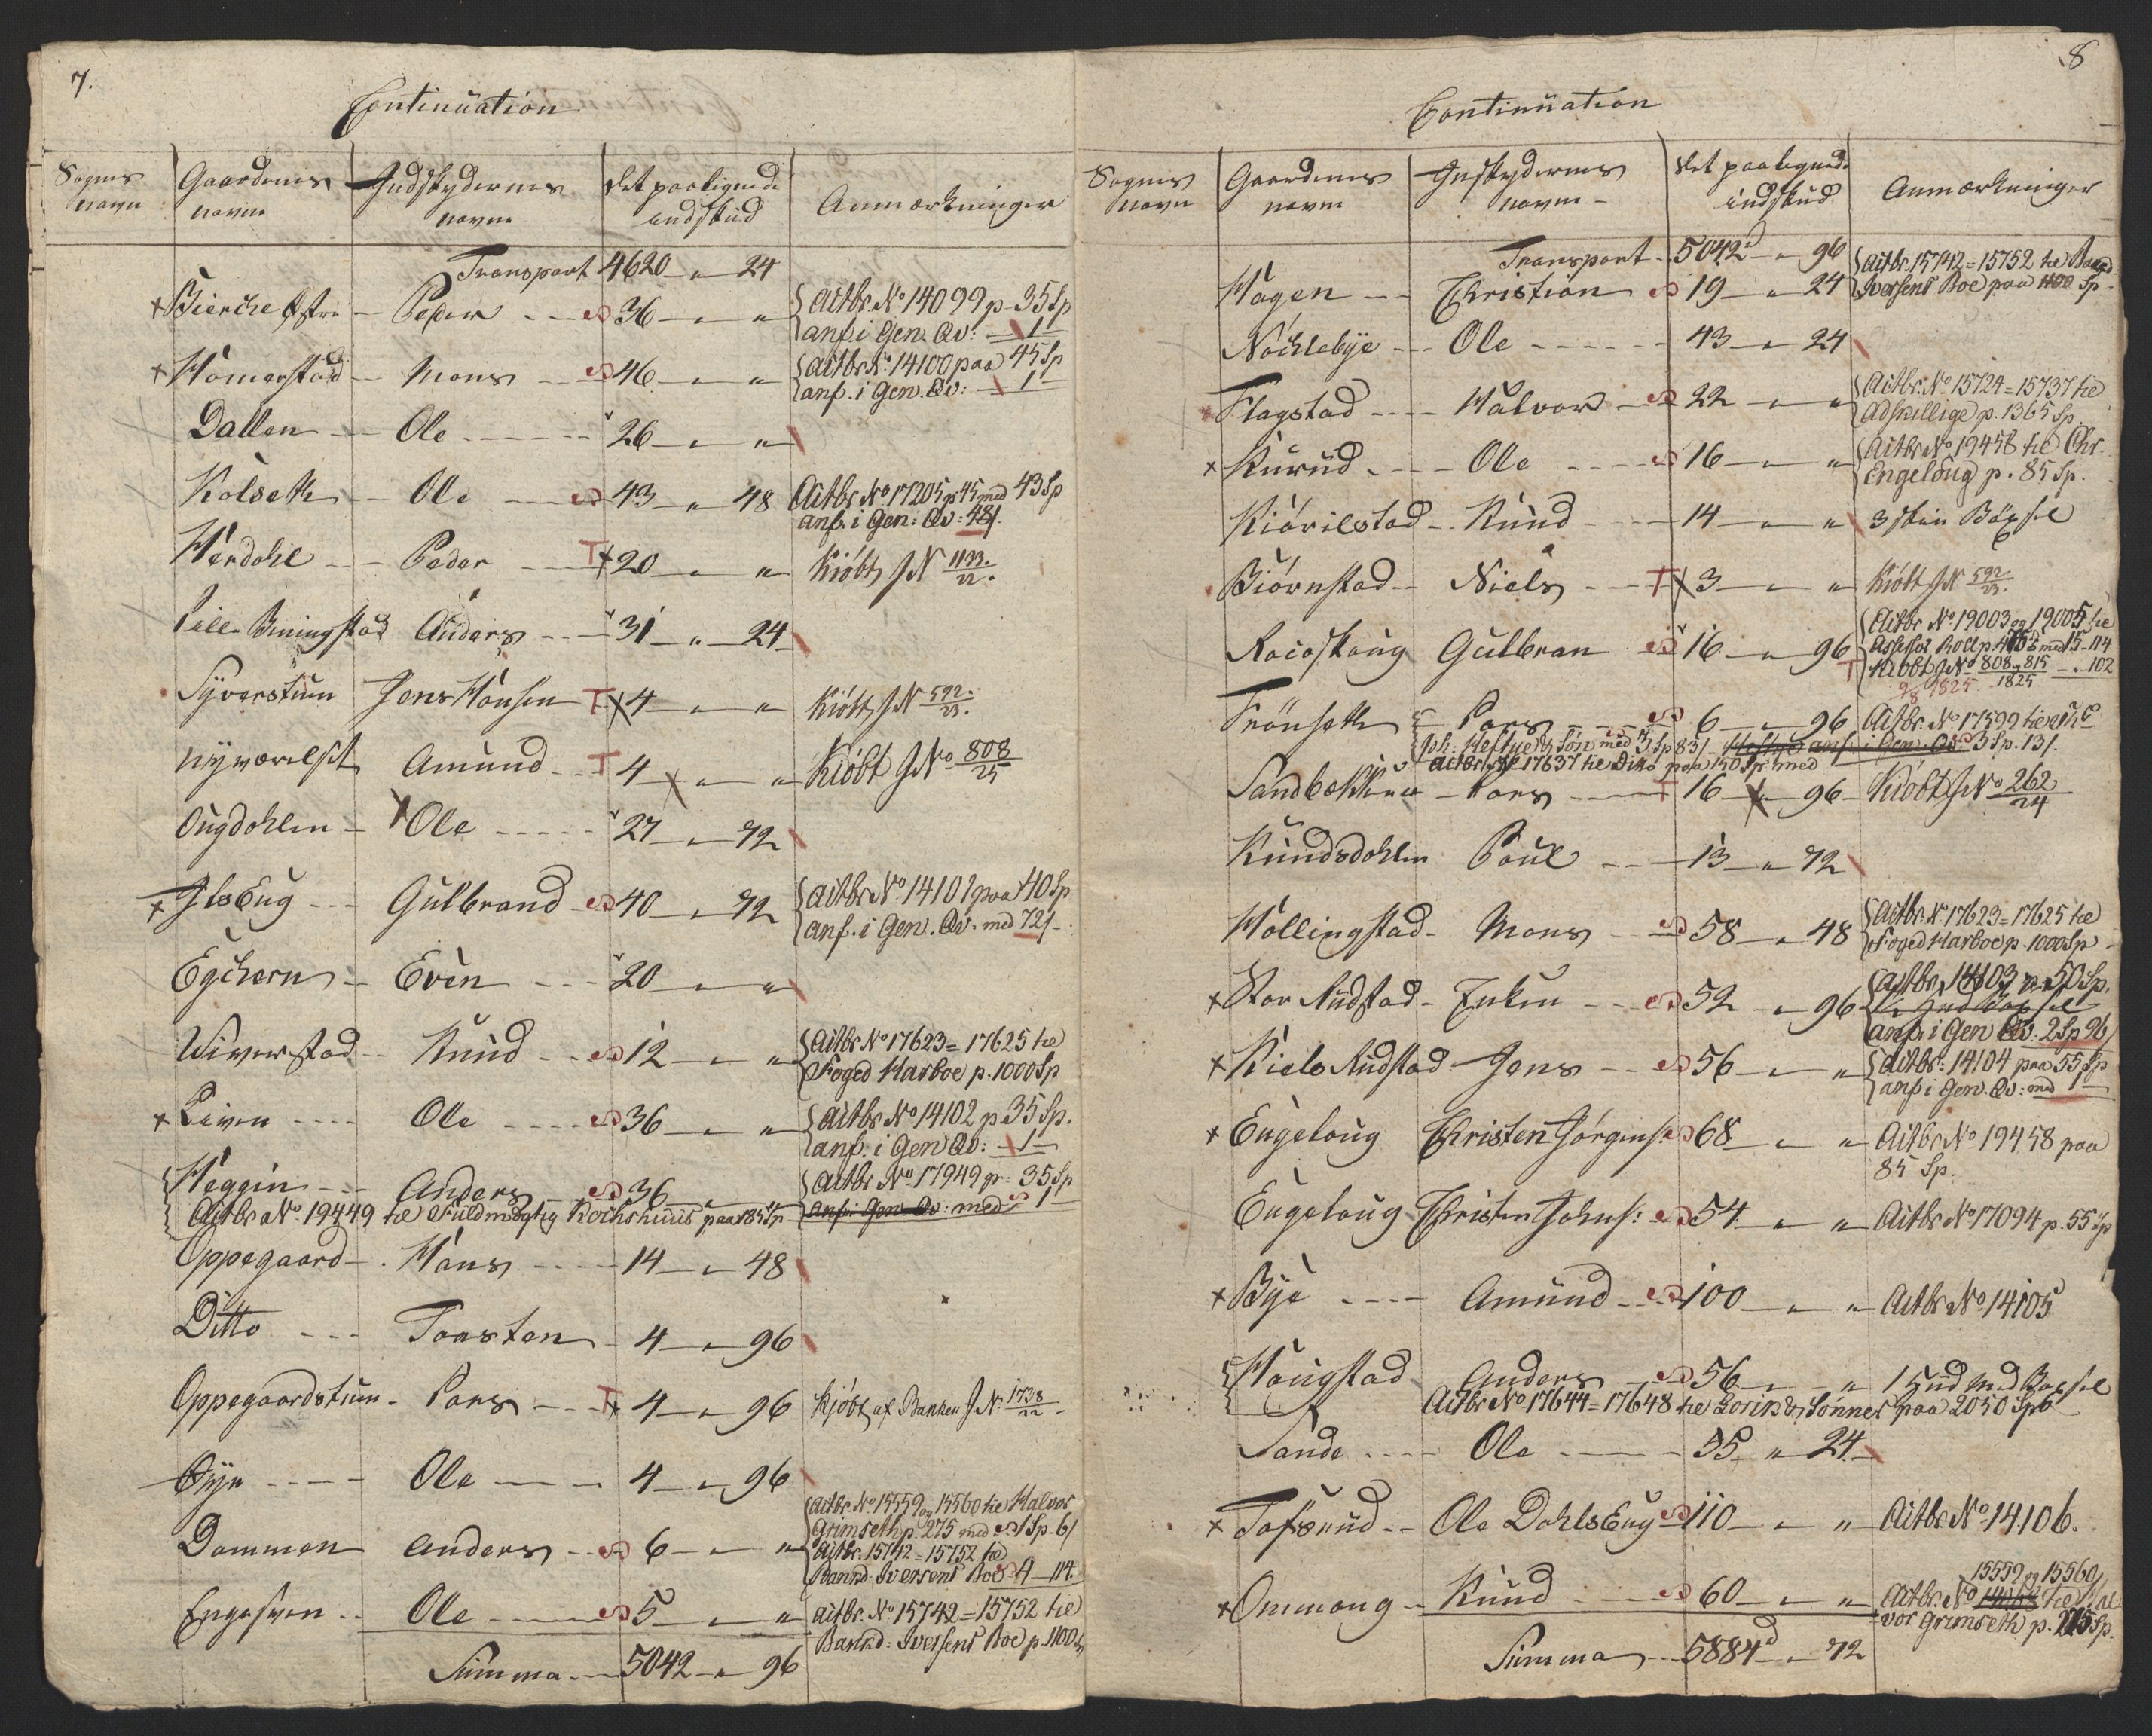 7.
Continuation
Sogners navn | Gaardenes navne | Indskydernes navne | det paalignede indskud | Anmærkninger
Transport 4620 „ 24
× Bierche Østre - Peder - 36 „ „ Actbr. No 14099 p. 35 Sp
anf. i Gen. Qv: - 1
× Homerstad - Mons - 46 „ „ Actbr. No 14100 paa 45 Sp
anf. i Gen. Qv: - 1
Dallen - Ole - 26 „ „
Kolseth - Ole - 43 „ 48 Actbr. No 17205 p 45 med 43 Sp
anf. i Gen: Qv: 48/.
Herdahl - Peder - T × 20 „ „ Kiøbt J N 1133./22.
Lille Buningstad Anders - 31 „ 24
Syverstuen Jens Hansen T × 4 „ „ Kiøbt J N 592./23.
Nÿværelset Amund - T 4 × „ „ Kiøbt J No 808/25
Ougdohlen - × Ole - 27 „ 72
× Ilseug - Gulbrand - 40 „ 72 Actbr. No 14101 paa 40 Sp
anf. i Gen. Qv. med 72/-
Egchern - Even - 20 „ „
Wiverstad - Knud - 12 „ „ Actbr No 17623 = 17625 til
Foged Harboe p. 1000 Sp
× Liven - Ole - 36 „ „ Actbr No 14102 p 35 Sp.
anf. i Gen Qv: - 1
Heggin - Anders - 36 „ „ Actbr No 17949 p: 35 Sp
Actbr No 19449 til Fuldmægtig Kochshuus paa 185 Sp anf. i Gen. Qv: med 1
Oppegaard - Hans - 14 „ 48
Ditto - Torsten - 4 „ 96
Oppegaardstuen - Lars - T × 4 „ 96 Kjöbt af Banken J N 1738/22
Øÿe - Ole - 4 „ 96
Dammen Anders - 6 „ „ Actbr. No 15559 og 15560 til Halvor
Grimseth p. 275 med 1 Sp. 6/
Actbr. 15742 = 15752 til
Bannd: Iversens Boe 4 - 114.
Engesveen - Ole - 5 „ „ Actbr. No 15742 = 15752 til
Bannd: Iversens Boe p. 1100 Sp
Summa - 5042 „ 96
8
Continuation
Sognes navn | Gaardenes navne | Inskydernes navne - | det paalignede indskud | Anmærkninger
Transport - 5042 „ 96 Actbr. 15742 = 15752 til Bannd.
Hagen - Christian 19 „ 24 Iversens Boe paa 1100 Sp
Nöchlebÿe - Ole - 43 „ 24
× Flagstad - Halvor - 22 „ „ Actbr. No 15724 = 15737 til
Adskillige p. 1365 Sp
× Kurud - Ole - 16 „ „ Actbr No 19458 til Chr.
Engeloug p. 85 Sp.
Kiørilstad - Knud - 14 „ „ 3 Huus Böxsel
Biørnstad - Niels - T × 3 „ „ Kiøbt J N 592/23.
Roioskoug Gulbran 16 „ 96 Actbr No 19003 og 19005 til
Assessor Roll p. med 15 - 114
T Kiöbt J No 808 og 815/1825 - 102
9/8 1825
Trönseth - Lars - 6 „ 96 Actbr. No 17599 til
Joh: Heftye & Søn med 3 Sp 83/ Heftye anf. i Gen. Qv: 3 Sp. 13/.
Actbr. No 17637 til Ditto paa 150 Sp med
Sandbækken - Lars - T 16 × 96 - Kiöbt J No 262/24
Knudsdohlen Poul - 13 „ 72
Hollingstad - Mons - 58 „ 48 Actbr. No 17623 = 17625 til
Foged Harboe p. 1000 Sp
× Stor Rudstad - Embr. - 52 „ 96 Actbr. 14103 p 50 Sp.
anf. i Gen Qv: 2 Sp 96/
× Kiels Rudstad - Jens - 56 „ „ Actbr: 14104 paa 55 Sp
anf i Gen. Qv: med 1
× Engeloug Christen Jørgens: 68 „ „ Actbr No 19458 paa
85 Sp.
Engeloug Christen Johns: 54 „ „ Actbr No 17094 p. 55 Sp
× Bÿe - Amund - 100 „ „ Actbr No 14105
Hougstad Anders - 56 „ „ 1 Hud med Böxsel
Actbr No 17644 = 17648 til Lorik & Sønner paa 2050 Sp
Sande - Ole - 35 „ 24
× Tofsrud - Ole Dohlseug 110 „ „ Actbr. No 14106.
15559 og 15560
× Ommang - Knud - 60 „ „ Actbr. No til Hal-
vor Grimseth p. 275 Sp.
Summa - 5884 „ 72